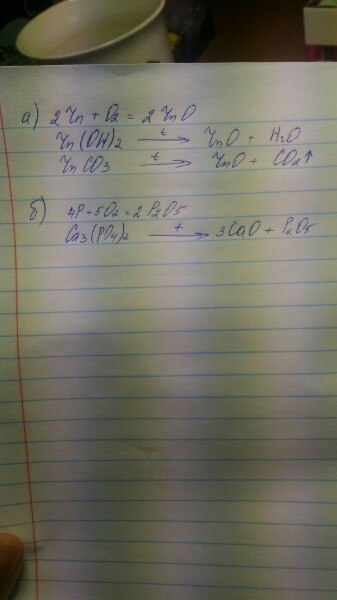 а) 2Zn + O2 = 2ZnO
Zn(OH)2 —t→ ZnO + H2O
ZnCO3 —t→ ZnO + CO2↑
б) 4P+5O2=2P2O5
Ca3(PO4)2 —t→ 3CaO + P2O5